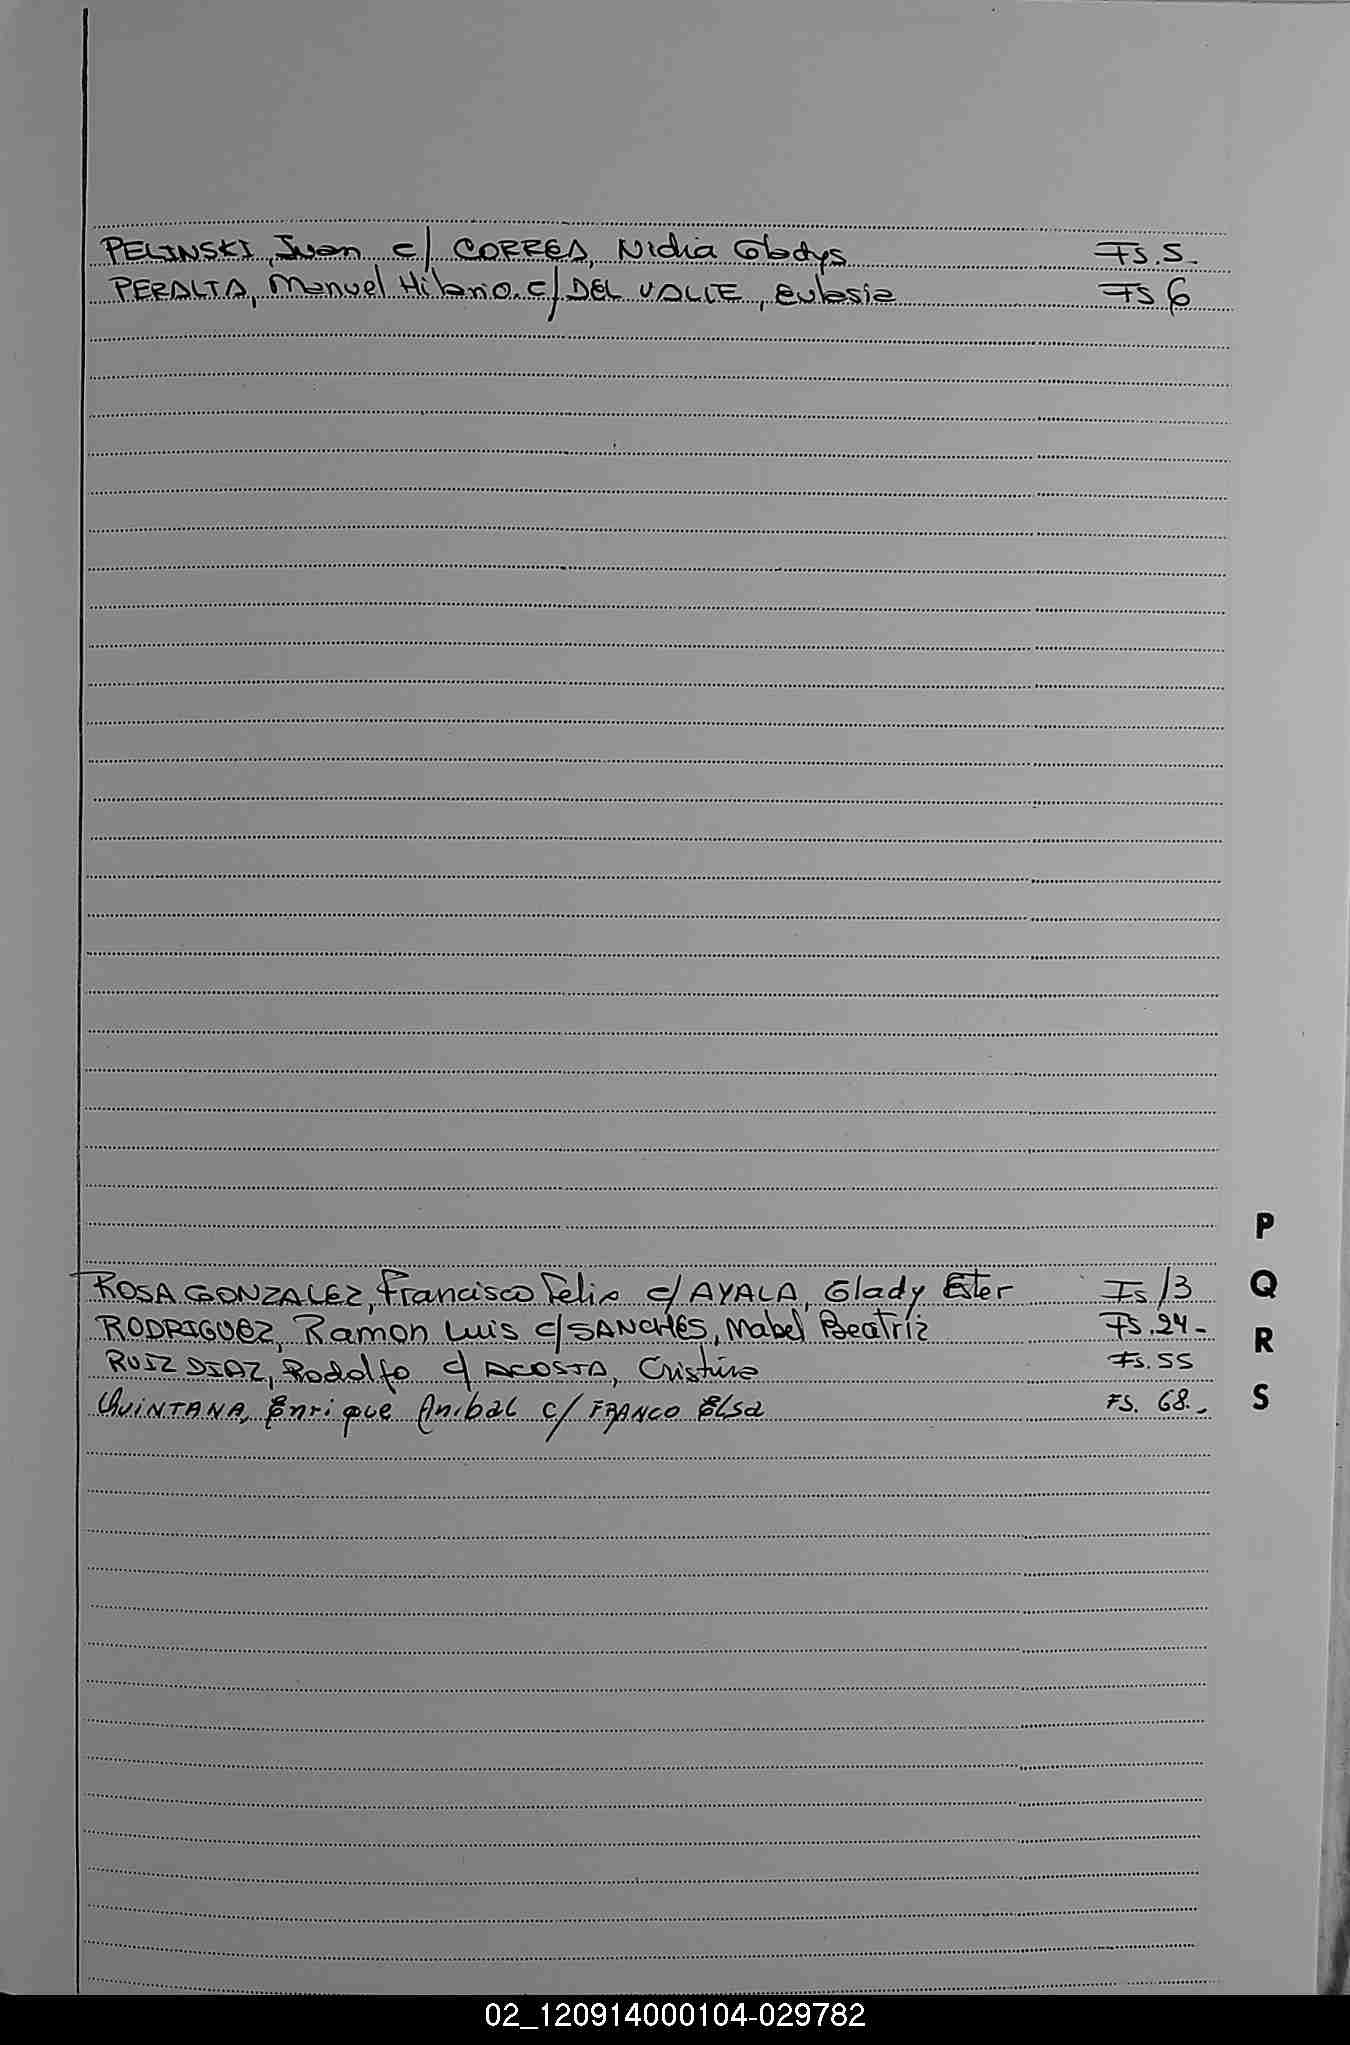 PELINSKI, Juan c/ CORREA, Nidia Gladys Fs. 5.-
PERALTA, Manuel Hilario. c/ DEL VALLE, Eulasia Fs 6
P
ROSA GONZALEZ, Francisco Felix c/ AYALA, Glady Ester Fs 13
Q
RODRIGUEZ, Ramon Luis c/ SANCHES, Mabel Beatríz Fs. 24-
R
RUIZ DIAZ, Rodolfo c/ ACOSTA, Cristina Fs. 55
QUINTANA, Enrique Anibal c/ FRANCO Elsa FS. 68.-
S
02_120914000104-029782